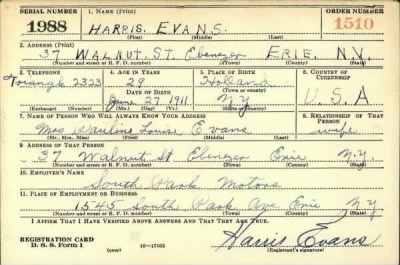 SERIAL NUMBER
1. NAME (Print)
ORDER NUMBER
1988
HARRIS. EVANS.
1510
(First) (Middle) (Last)
2. ADDRESS (Print)
37 WALNUT. ST. Ebenezer ERIE. N.Y.
(Number and street or R. F. D. number) (Town) (County) (State)
3. TELEPHONE
4. AGE IN YEARS
5. PLACE OF BIRTH
6. COUNTRY OF CITIZENSHIP
Triangle 2323
29
Holland
DATE OF BIRTH
(Town or county)
June 27 1911
N Y
U. S. A
(Exchange) (Number)
(Mo.) (Day) (Yr.)
(State or country)
7. NAME OF PERSON WHO WILL ALWAYS KNOW YOUR ADDRESS
8. RELATIONSHIP OF THAT PERSON
Mrs Pauline Louise Evans
wife
(Mr., Mrs., Miss) (First) (Middle) (Last)
9. ADDRESS OF THAT PERSON
37 Walnut St Ebenezer Erie N.Y.
(Number and street or R. F. D. number) (Town) (County) (State)
10. EMPLOYER'S NAME
South Park Motors
11. PLACE OF EMPLOYMENT OR BUSINESS
1545 South Park Ave Erie N Y
(Number and street or R. F. D. number) (Town) (County) (State)
I AFFIRM THAT I HAVE VERIFIED ABOVE ANSWERS AND THAT THEY ARE TRUE.
REGISTRATION CARD
D. S. S. Form 1
(over)
16-17105
Harris Evans
(Registrant's signature)